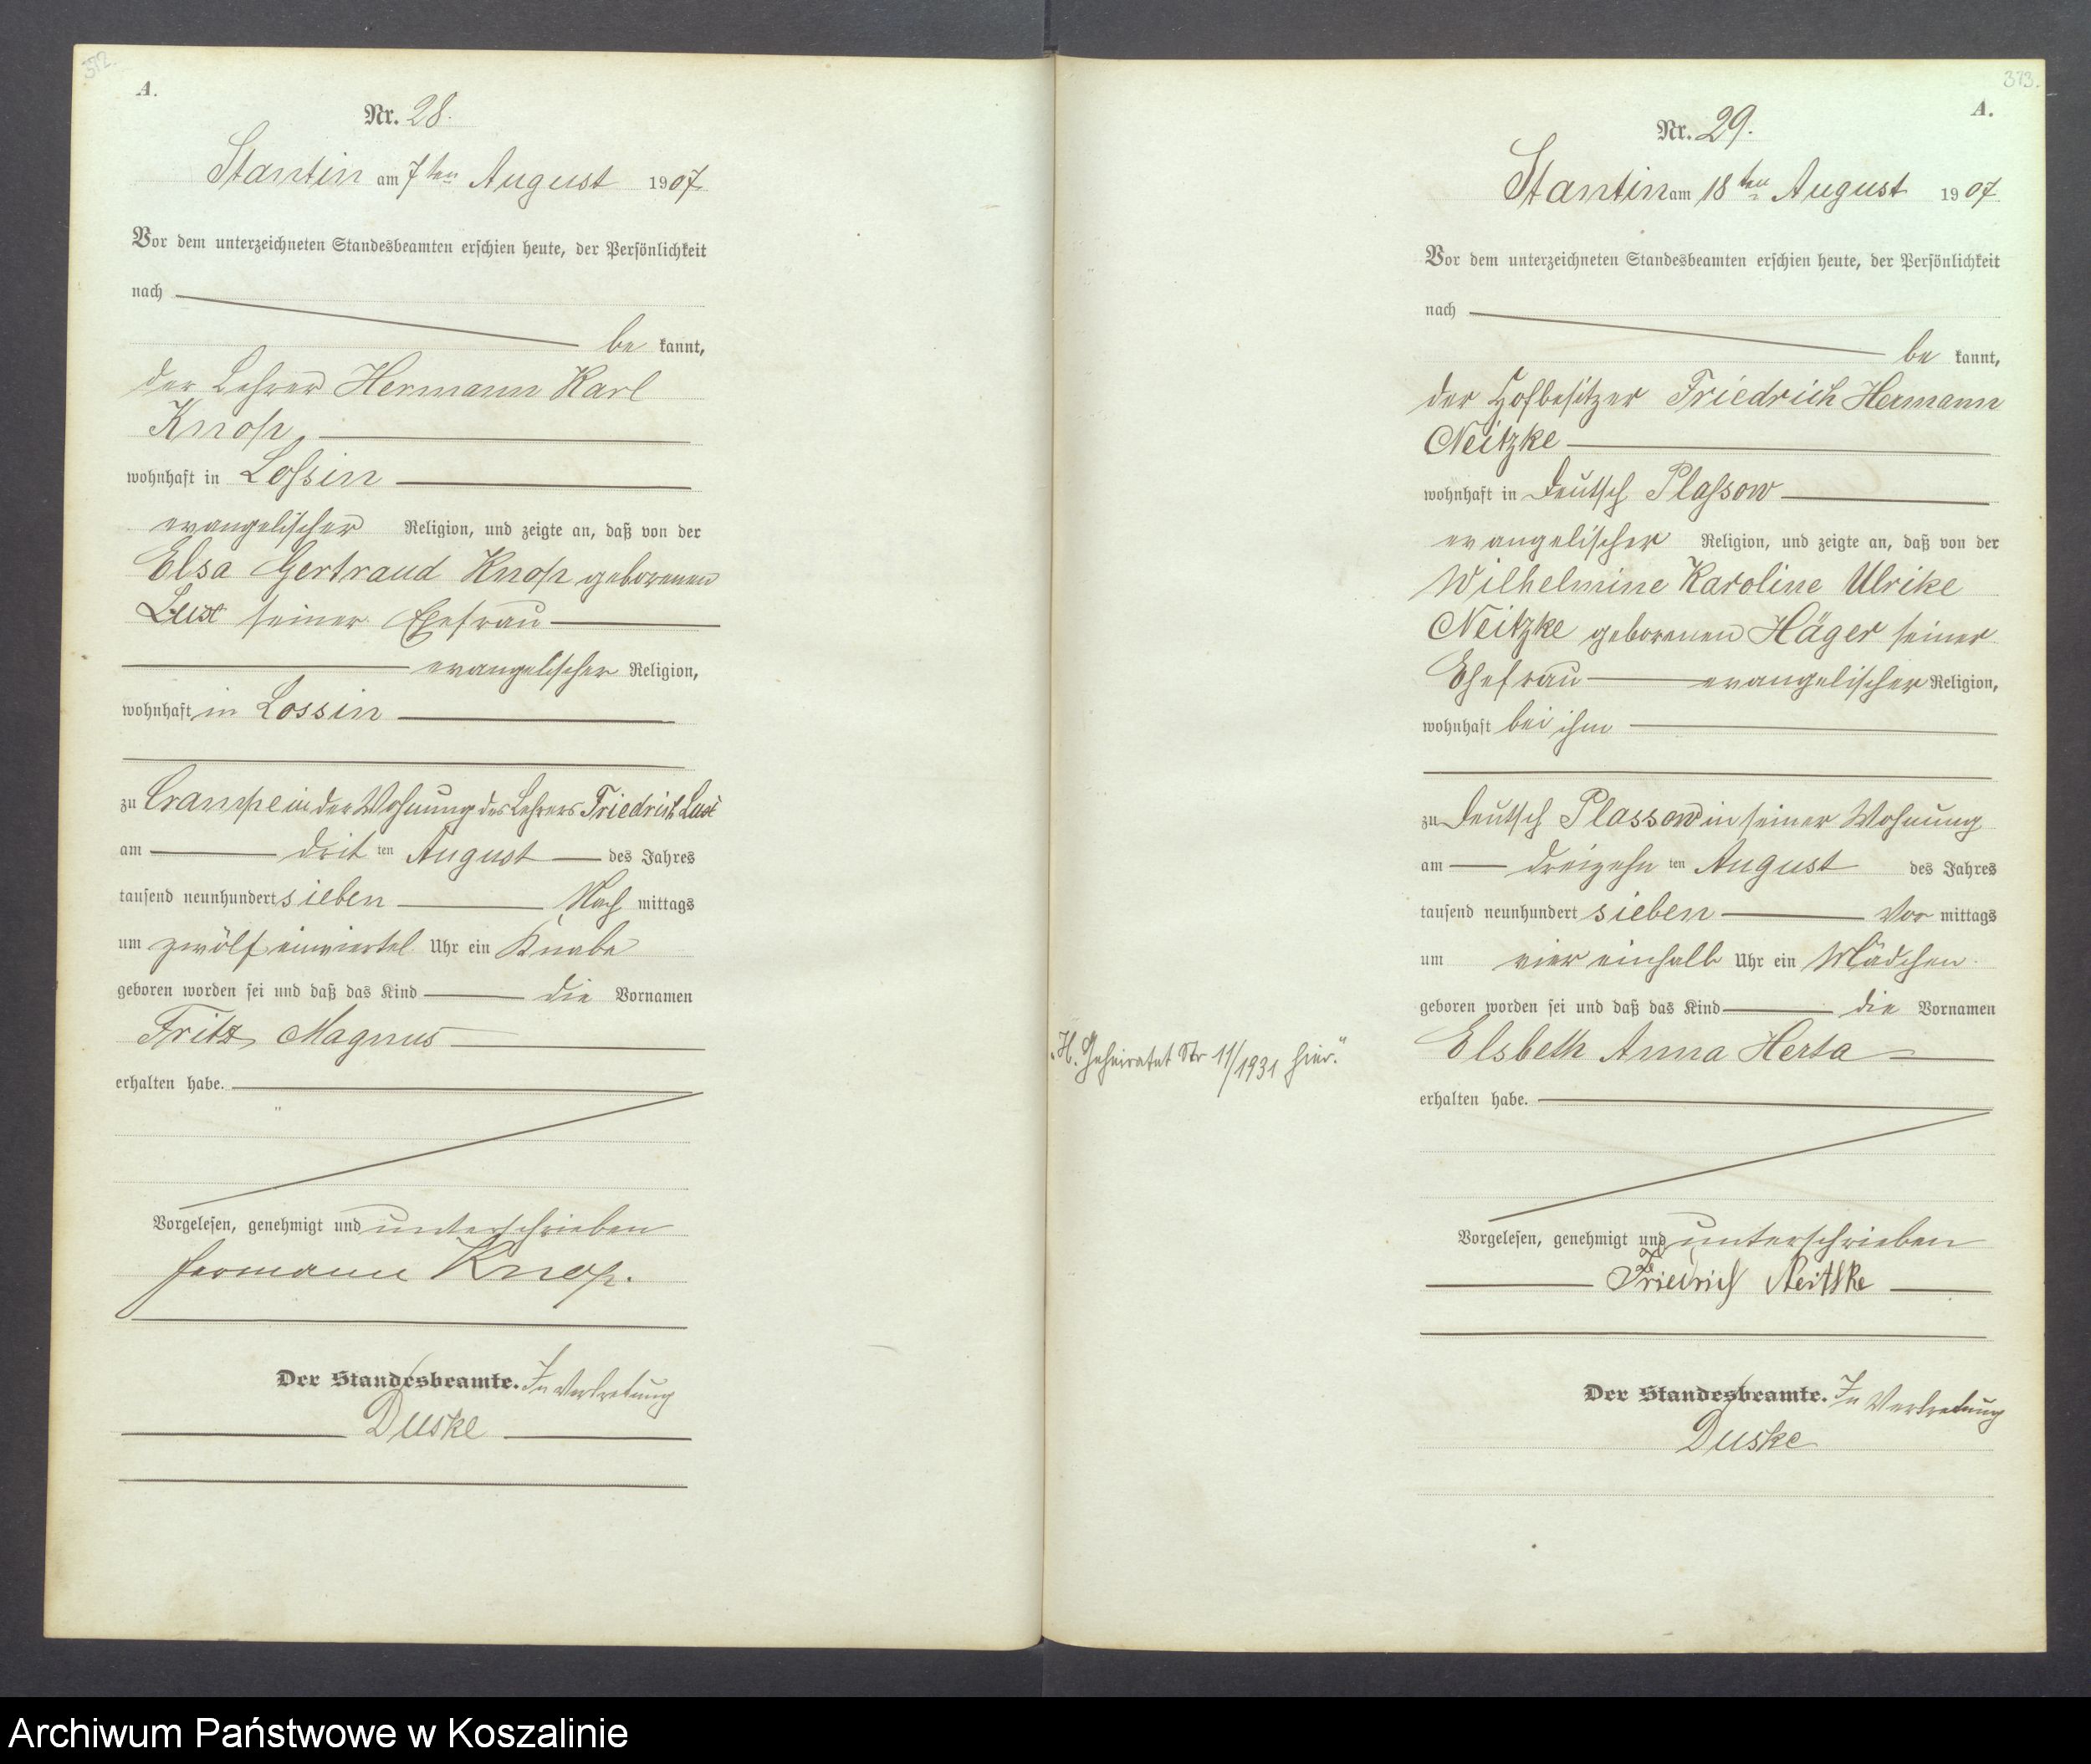 372.
A.
Nr. 28.
Stantin am 7ten August 1907.
Vor dem unterzeichneten Standesbeamten erschien heute, der Persönlichkeit
nach
be kannt,
der Lehrer Hermann Karl
Knop,
wohnhaft in Lossin
evangelischer Religion, und zeigte an, daß von der
Elsa Gertraud Knop geborenen
Lust seiner Ehefrau
evangelischer Religion,
wohnhaft in Lossin
zu Crampe in der Wohnung des Lehrers Friedrich Lust
am dritten August des Jahres
tausend neunhundert sieben Nach mittags
um zwölf einviertel Uhr ein Knabe
geboren worden sei und daß das Kind die Vornamen
Fritz Magnus
erhalten habe.
Vorgelesen, genehmigt und unterschrieben
Hermann Knop.
Der Standesbeamte. In Vertretung
Duske
373.
A.
Nr. 29.
Stantin am 18ten August 1907
Vor dem unterzeichneten Standesbeamten erschien heute, der Persönlichkeit
nach
be kannt,
der Hofbesitzer Friedrich Hermann
Neitzke
wohnhaft in Deutsch Plassow
evangelischer Religion, und zeigte an, daß von der
Wilhelmine Karoline Ulrike
Neitzke geborenen Häger seiner
Ehefrau evangelischer Religion,
wohnhaft bei ihm
zu Deutsch Plassow in seiner Wohnung
am dreizehnten August des Jahres
tausend neunhundert sieben Vor mittags
um vier einhalb Uhr ein Mädchen
geboren worden sei und daß das Kind die Vornamen
Elsbeth Anna Herta
„H. Geheiratet Nr 11/1931 hier."
erhalten habe.
Vorgelesen, genehmigt und unterschrieben
Friedrich Neitzke
Der Standesbeamte. In Vertretung
Duske
Archiwum Państwowe w Koszalinie